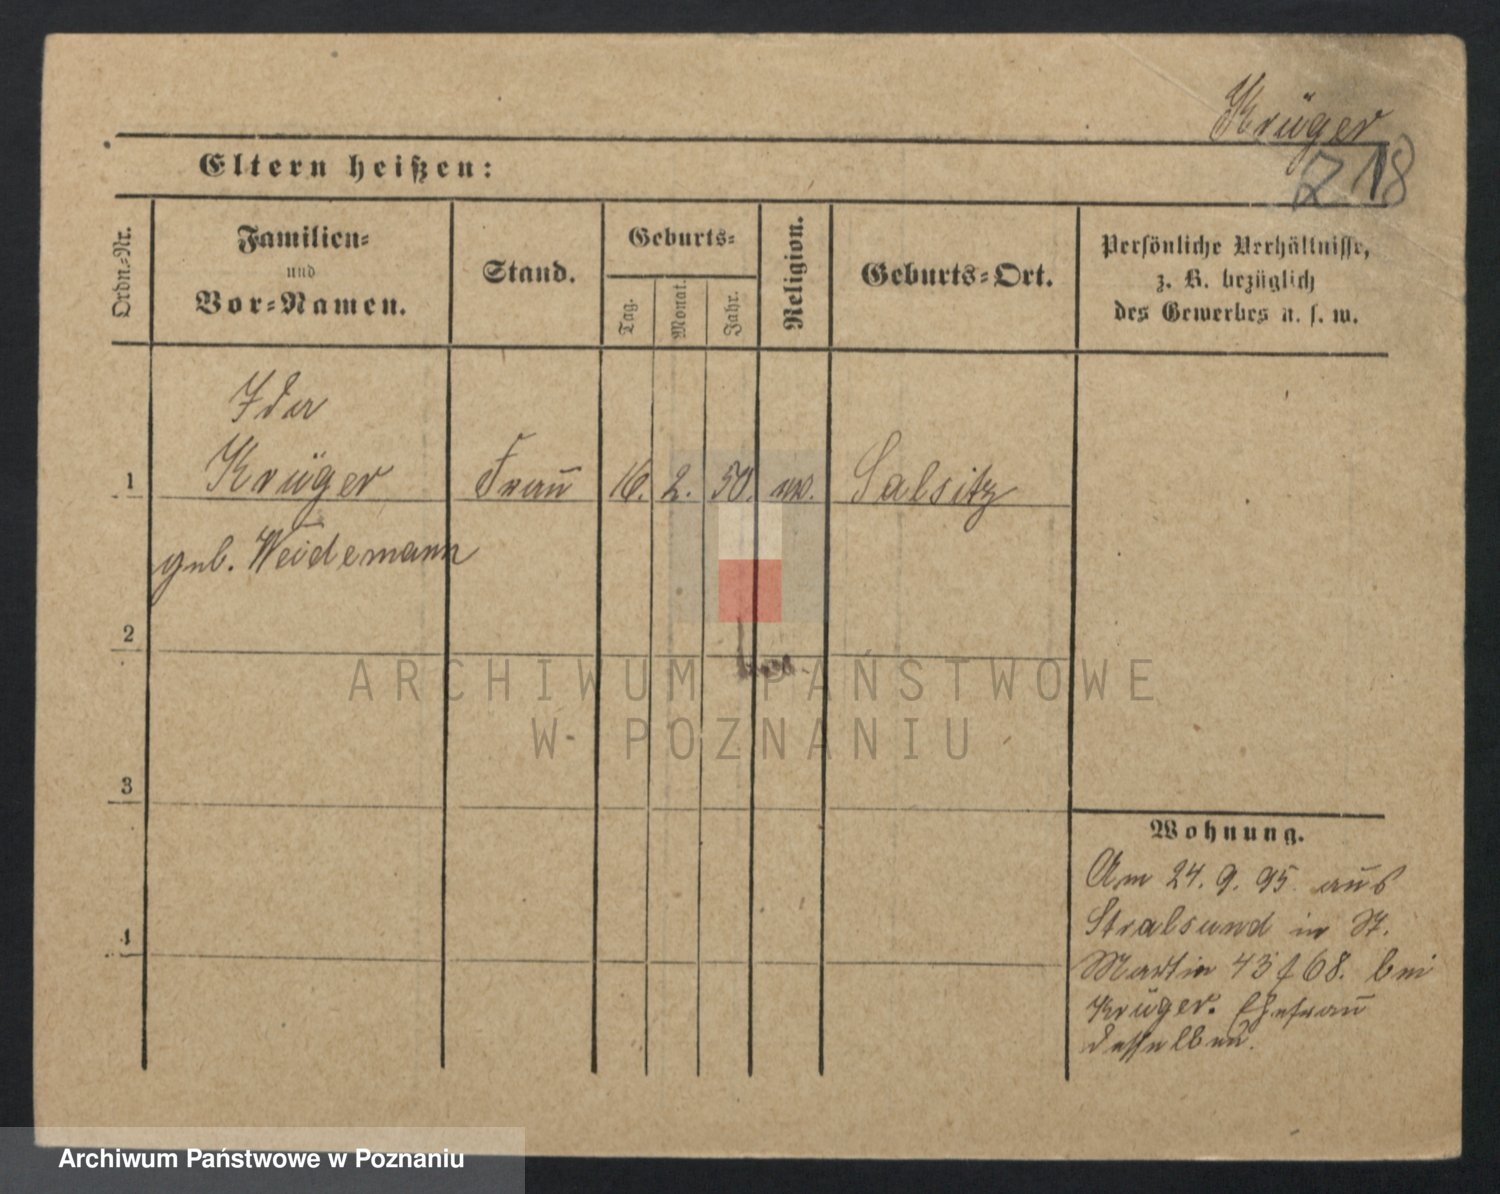 Krüger
218
Eltern heißen:
Ordn.-Nr.
Familien-
und
Vor-Namen.
Stand.
Geburts-
Tag.
Monat.
Jahr.
Religion.
Geburts-Ort.
Persönliche Verhältnisse,
z. B. bezüglich
des Gewerbes u. s. w.
Ida
1 Krüger Frau 16. 2. 50. ev. Salsitz
geb. Weidemann
2
3
4
Wohnung.
Am 24. 9. 95. aus
Stralsund in St.
Martin 43 / 68. bei
Krüger. Ehefrau
desselben.
ARCHIWUM PAŃSTWOWE
W POZNANIU
Archiwum Państwowe w Poznaniu